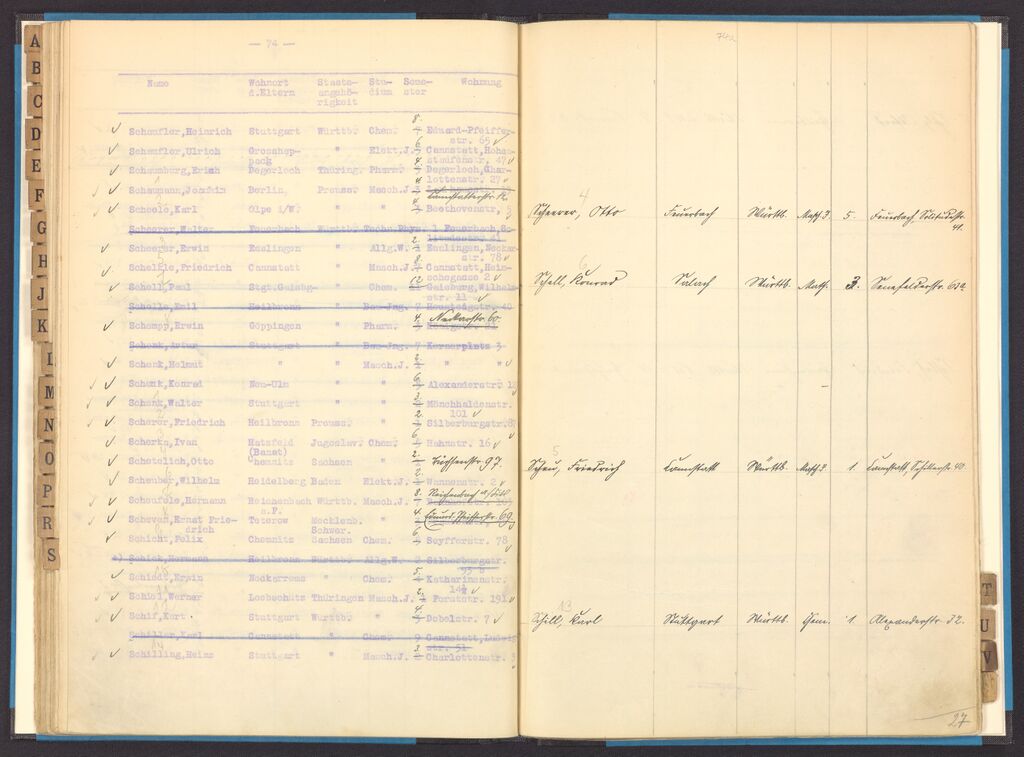 A
B
C
D
E
F
G
H
J
K
L
M
N
O
P
R
S
— 74 —
Name Wohnort Staats- Stu- Seme- Wohnung
d.Eltern angehö- dium ster
rigkeit
8.
Schaufler, Heinrich Stuttgart Württb. Chem. Eduard-Pfeiffer-
str. 65
Schaufler, Ulrich Grosshep- " Elekt.J. Cannstatt, Hohen
pach staufenstr. 47
Schaumberg, Erich Degerloch Thüring. Pharm. Degerloch, Char-
lottenstr. 27
Schaumann, Joachim Berlin Preuss. Masch.J. 3
Cannstatterstr.
Scheele, Karl Olpe i/W. " " Beethovenstr.
Scheerer, Walter Feuerbach Württb. Techn.Phys. 1 Feuerbach, So-
litudestr. 41
Scheerer, Erwin Esslingen " Allg.W. Esslingen, Neckar
str. 78
Schefgle, Friedrich Cannstatt " Masch.J. Cannstatt, Hein-
8.
Schell, Paul Stgt.Gaisbg " Chem. 12 Gaisburg, Wilhelm
str. 11
Schelle, Emil Heilbronn " Bau-Jng. 7 40
4. Neckarstr. 60.
Schempp, Erwin Göppingen " Pharm.
Schenk, Artur Stuttgart " Bau-Jng. 7 Kernerplatz 3
Schenk, Helmut " " Masch.J. " "
Schenk, Konrad Neu-Ulm " " 6. Alexanderstr.
Schenk, Walter Stuttgart " " Mönchhaldenstr.
101
Scherer, Friedrich Heilbronn Preuss. " 2. Silberburgstr. 87
Scherka, Ivan Hatzfeld Jugoslav. Chem. 6. Hahnstr. 16
(Banat)
Schetelich, Otto Chemnitz Sachsen " 2. Büchsenstr. 97.
Scheuber, Wilhelm Heidelberg Baden Elekt.J. 2. Wannenstr. 2
Scheufele, Hermann Reichenbach Württb. Masch.J. 8. Reichenbach
a.F.
Scheven, Ernst Frie- Teterow Mecklenb. " 4. Eduard-Pfeifferstr. 69.
drich Schwer.
Schicht, Felix Chemnitz Sachsen Chem. 6. Seyfferstr. 78
Schick, Hermann Heilbronn Württb. Allg.W. 2 Silberburgstr.
Schiedt, Erwin Neckarrems " Chem. 5. Katharinenstr.
Schiel, Werner Loebschutz Thüringen Masch.J. 2. Forststr. 191
Schif, Kurt Stuttgart Württb. " 4. Dobelstr. 7
Schiller, Karl Cannstatt " Chem. 9 Cannstatt, Ludwig
str. 51
Schilling, Heinz Stuttgart " Masch.J. 3. Charlottenstr. 3
74a
4
Scheerer, Otto Feuerbach Württb. Masch.J. 5. Feuerbach Solitudestr.
41.
6
Schell, Konrad Salach Württb. Math. 3. Senefelderstr.
5
Scheu, Friedrich Cannstatt Württb. Masch.J. 1. Cannstatt, Schillerstr. 40.
13
Schill, Karl Stuttgart Württb. Chem. 1. Alexanderstr. 32.
T
U
V
27